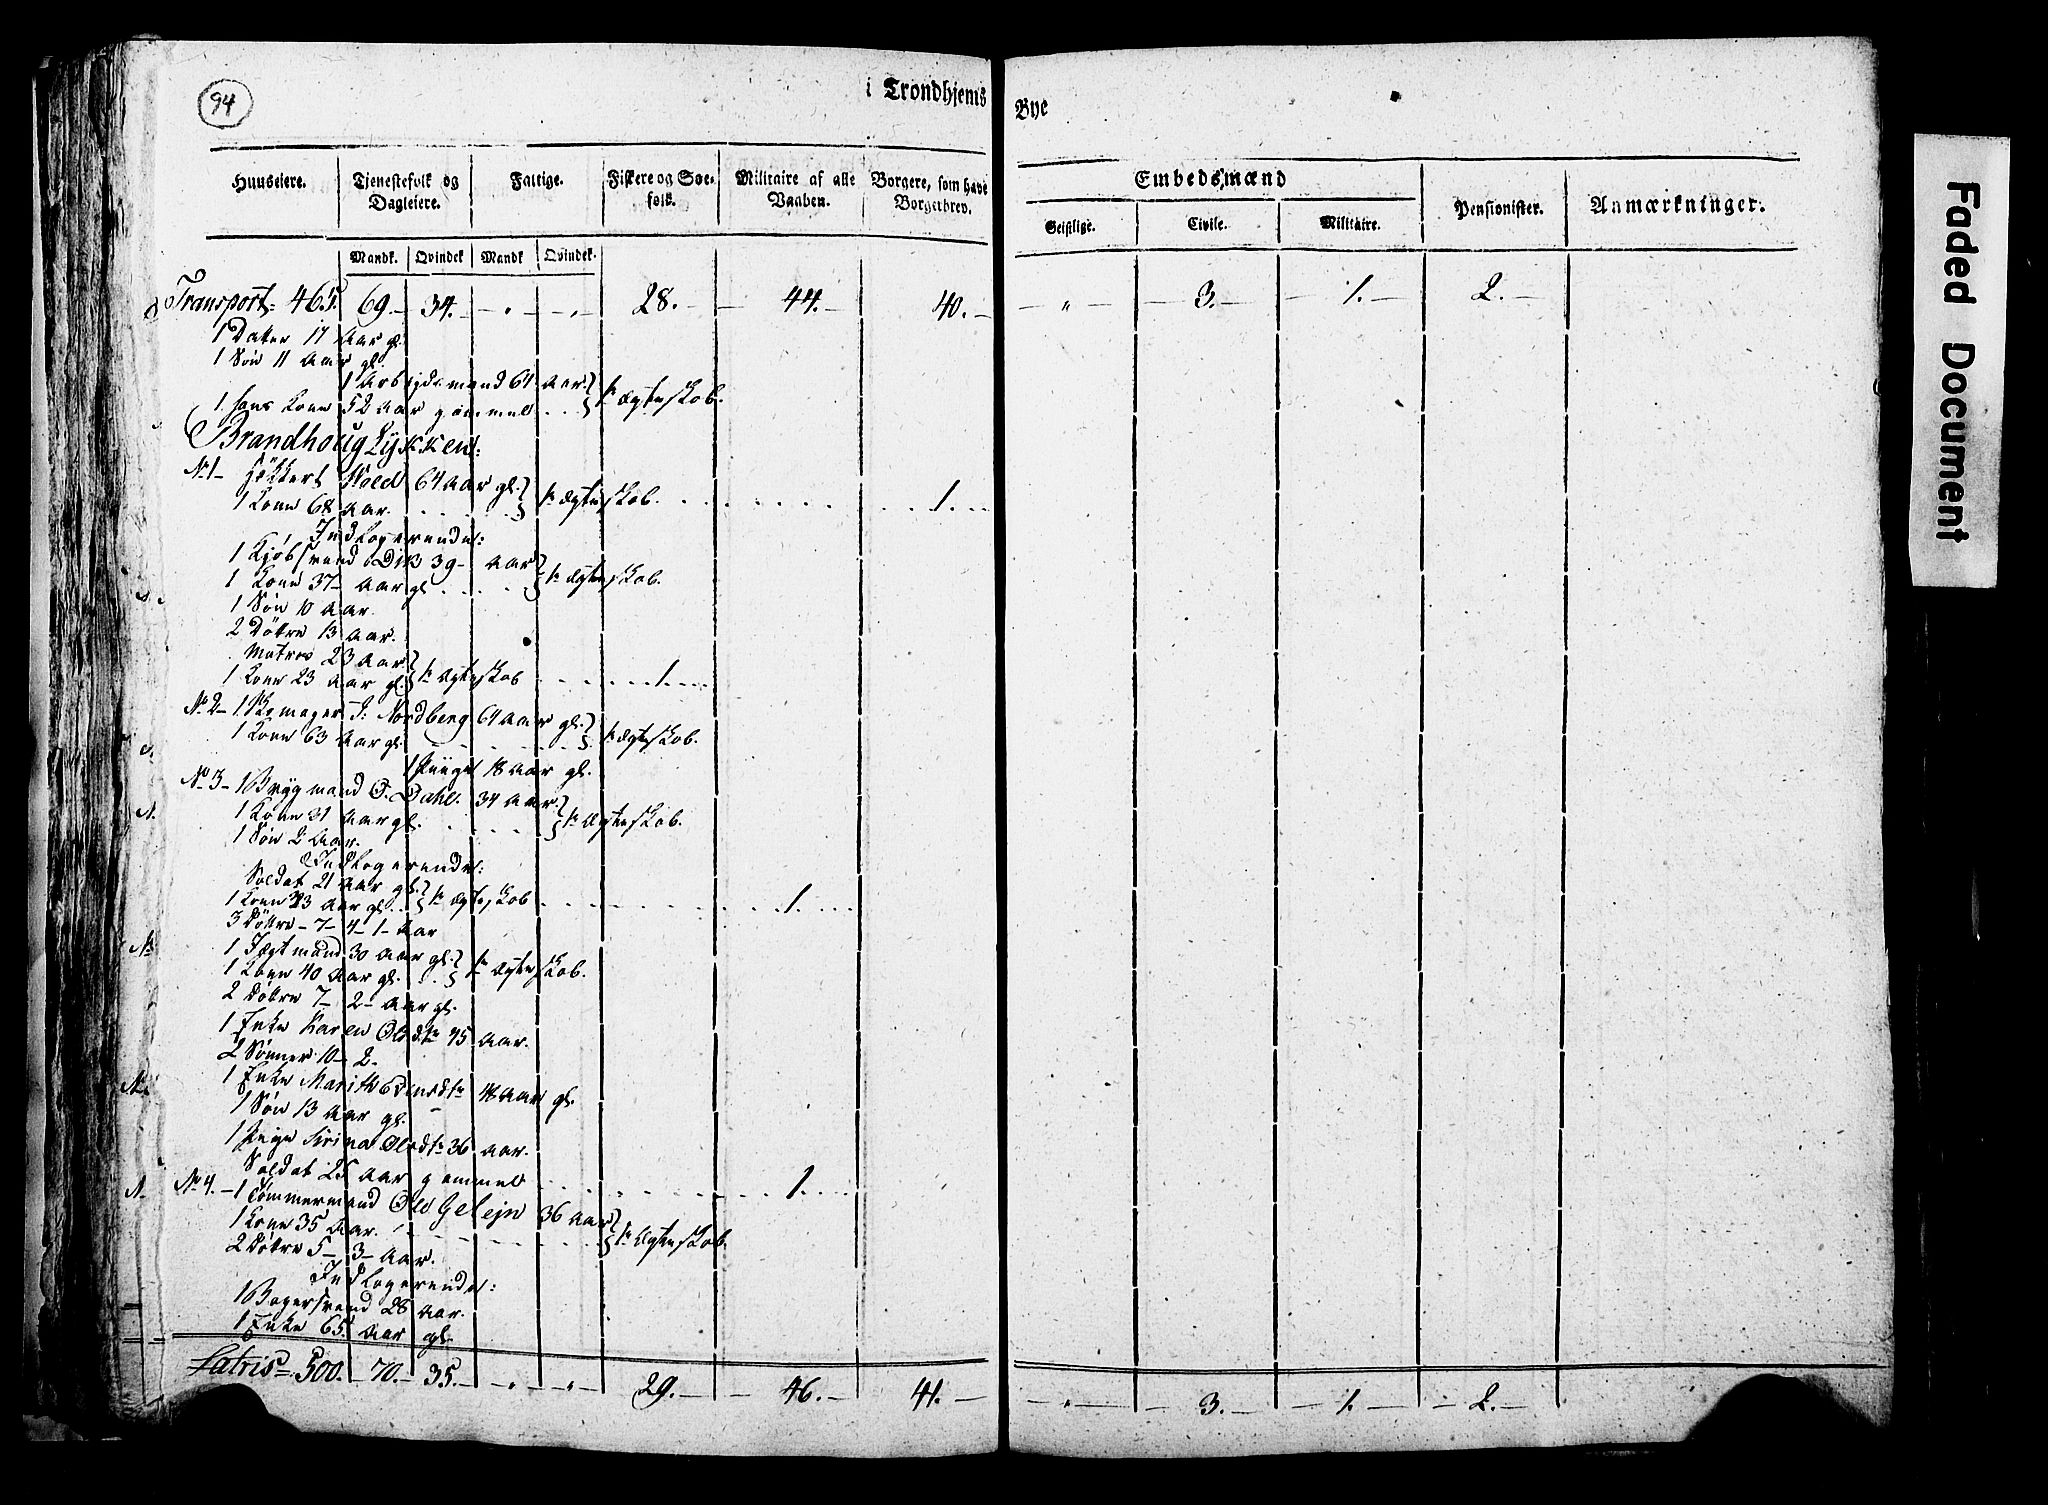 94
i Trondhjems Bye
Huuseiere. Tjenestefolk og Dagleiere. Fattige. Fiskere og Søefolk. Militaire af alle Vaaben. Borgere, som have Borgerbrev. Embedsmænd Pensionister. Anmærkninger.
Geistlige. Civile. Militaire.
Mandk. Qvindek Mandk Qvindek.
Transport: 465. 69. 34. " " 28. 44. 40. " 3. 1. 2.
1 Datter 17 Aar gl.
1 Søn 11 Aar gl.
1 Arbejdsmand 64 Aar
1 hans Kone 52 Aar gammel 1te Ægteskab.
Brandhoug Lykken:
No 1 Wold 64 Aar gl.
1 Kone 68 Aar. 1te Ægteskab. 1.
Indlogerende:
1 39 Aar
1 Kone 37 Aar gl. 1te Ægteskab.
1 Søn 10 Aar.
2 Døtre 13 Aar.
Matros 23 Aar
1 Kone 23 Aar gl. 1te Ægteskab 1.
No 2 1 J: Nordberg 64 Aar gl.
1 Kone 63 Aar gl. 1te Ægteskab.
1 Piige 18 Aar gl.
No 3 1 Brygmand O. Dahl. 34 Aar.
1 Kone 31 Aar gl. 1te Ægteskab.
1 Søn 2 Aar.
Indlogerende:
Soldat 21 Aar gl.
1 Kone 23 Aar gl. 1te Ægteskab 1.
3 Døttre 7 4 1 Aar
1 Jægtmand 30 Aar gl.
1 Kone 40 Aar gl. 1te Ægteskab.
2 Døtre 7 2 Aar gl.
1 Enke Karen Olsdtr 45 Aar.
2 Sønner 10 2
1 Enke Marith 48 Aar gl.
1 Søn 13 Aar gl.
1 Pige Sirina Olsdtr 36 Aar.
Soldat 25 Aar gammel 1.
No 4. 1 Tømmermand Ole Gelejn 36 Aar
1 Kone 35 Aar. 1te Ægteskab.
2 Døtre 5 3 Aar.
Indlogerende:
1 Bagersvend 28 Aar.
1 Enke 65 Aar gl.
Latris 500. 70. 35. " " 29. 46. 41. " 3. 1. 2.
Faded Document